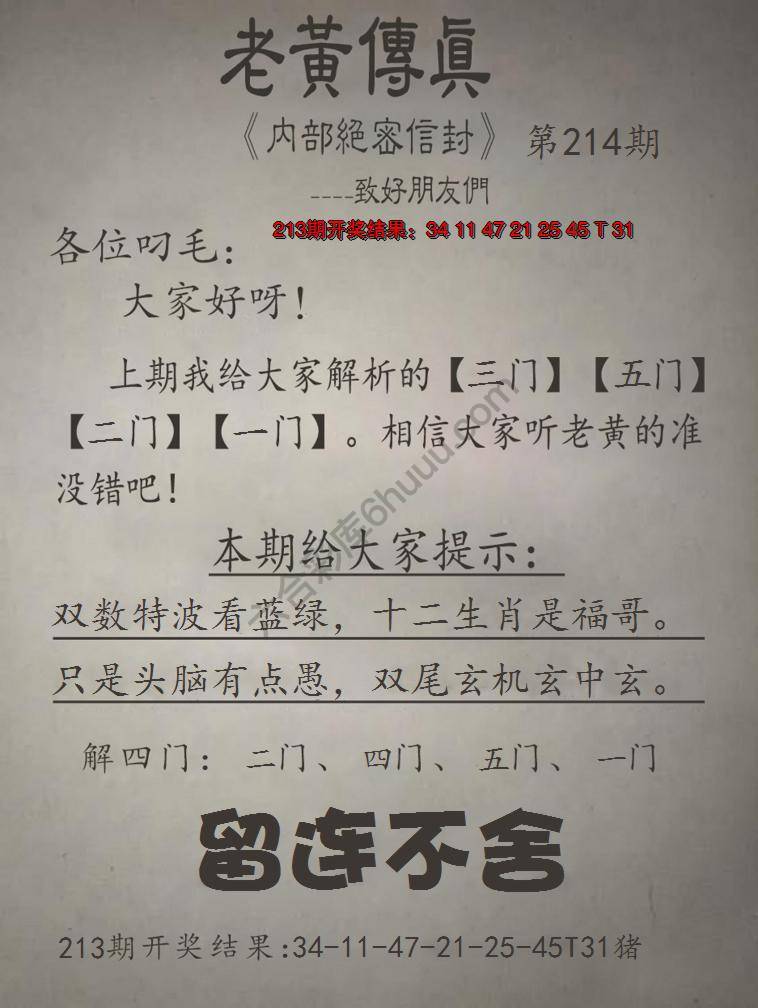 老黃傳眞
《内部絕密信封》 第214期
----致好朋友們
213期开奖结果：34 11 47 21 25 45 T 31
各位叼毛：
大家好呀！
上期我给大家解析的【三门】【五门】
【二门】【一门】。相信大家听老黄的准
没错吧！
本期给大家提示：
双数特波看蓝绿，十二生肖是福哥。
只是头脑有点愚，双尾玄机玄中玄。
解四门： 二门、 四门、 五门、 一门
留连不舍
213期开奖结果:34-11-47-21-25-45T31猪
六合彩库6huuu.com